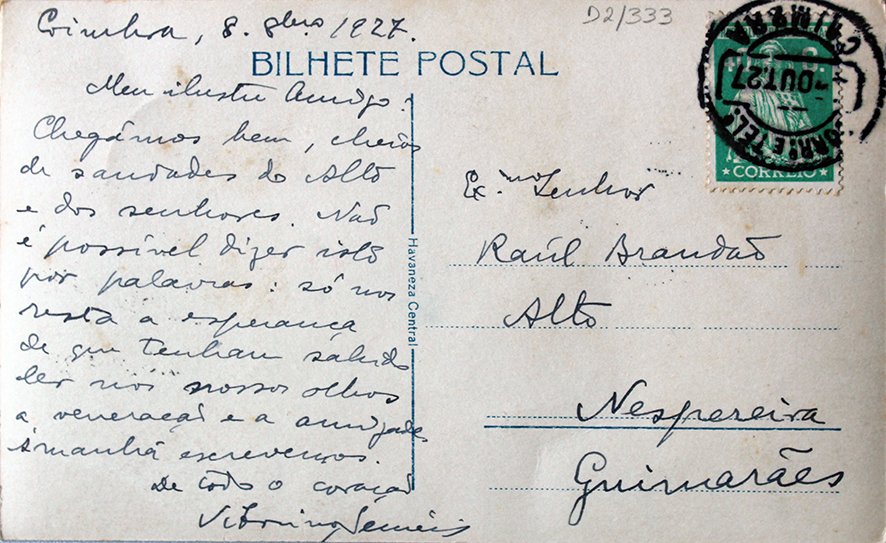 Coimbra, 8. 8bro 1927.
D2/333
BILHETE POSTAL
Meu ilustre Amigo:
Chegámos bem, cheios
de saudades do Alto
e dos senhores. Não
é possível dizer isto
por palavras: só nos
resta a esperança
de que tenham sabido
ler nos nossos olhos
a veneração e a amizade.
Àmanhã escrevemos.
De todo o coração
Vitorino Nemésio
Havaneza Central
Ex.mo Senhor
Raúl Brandão
Alto
Nespereira
Guimarães
CORREIO
OUT.27
COIMBRA